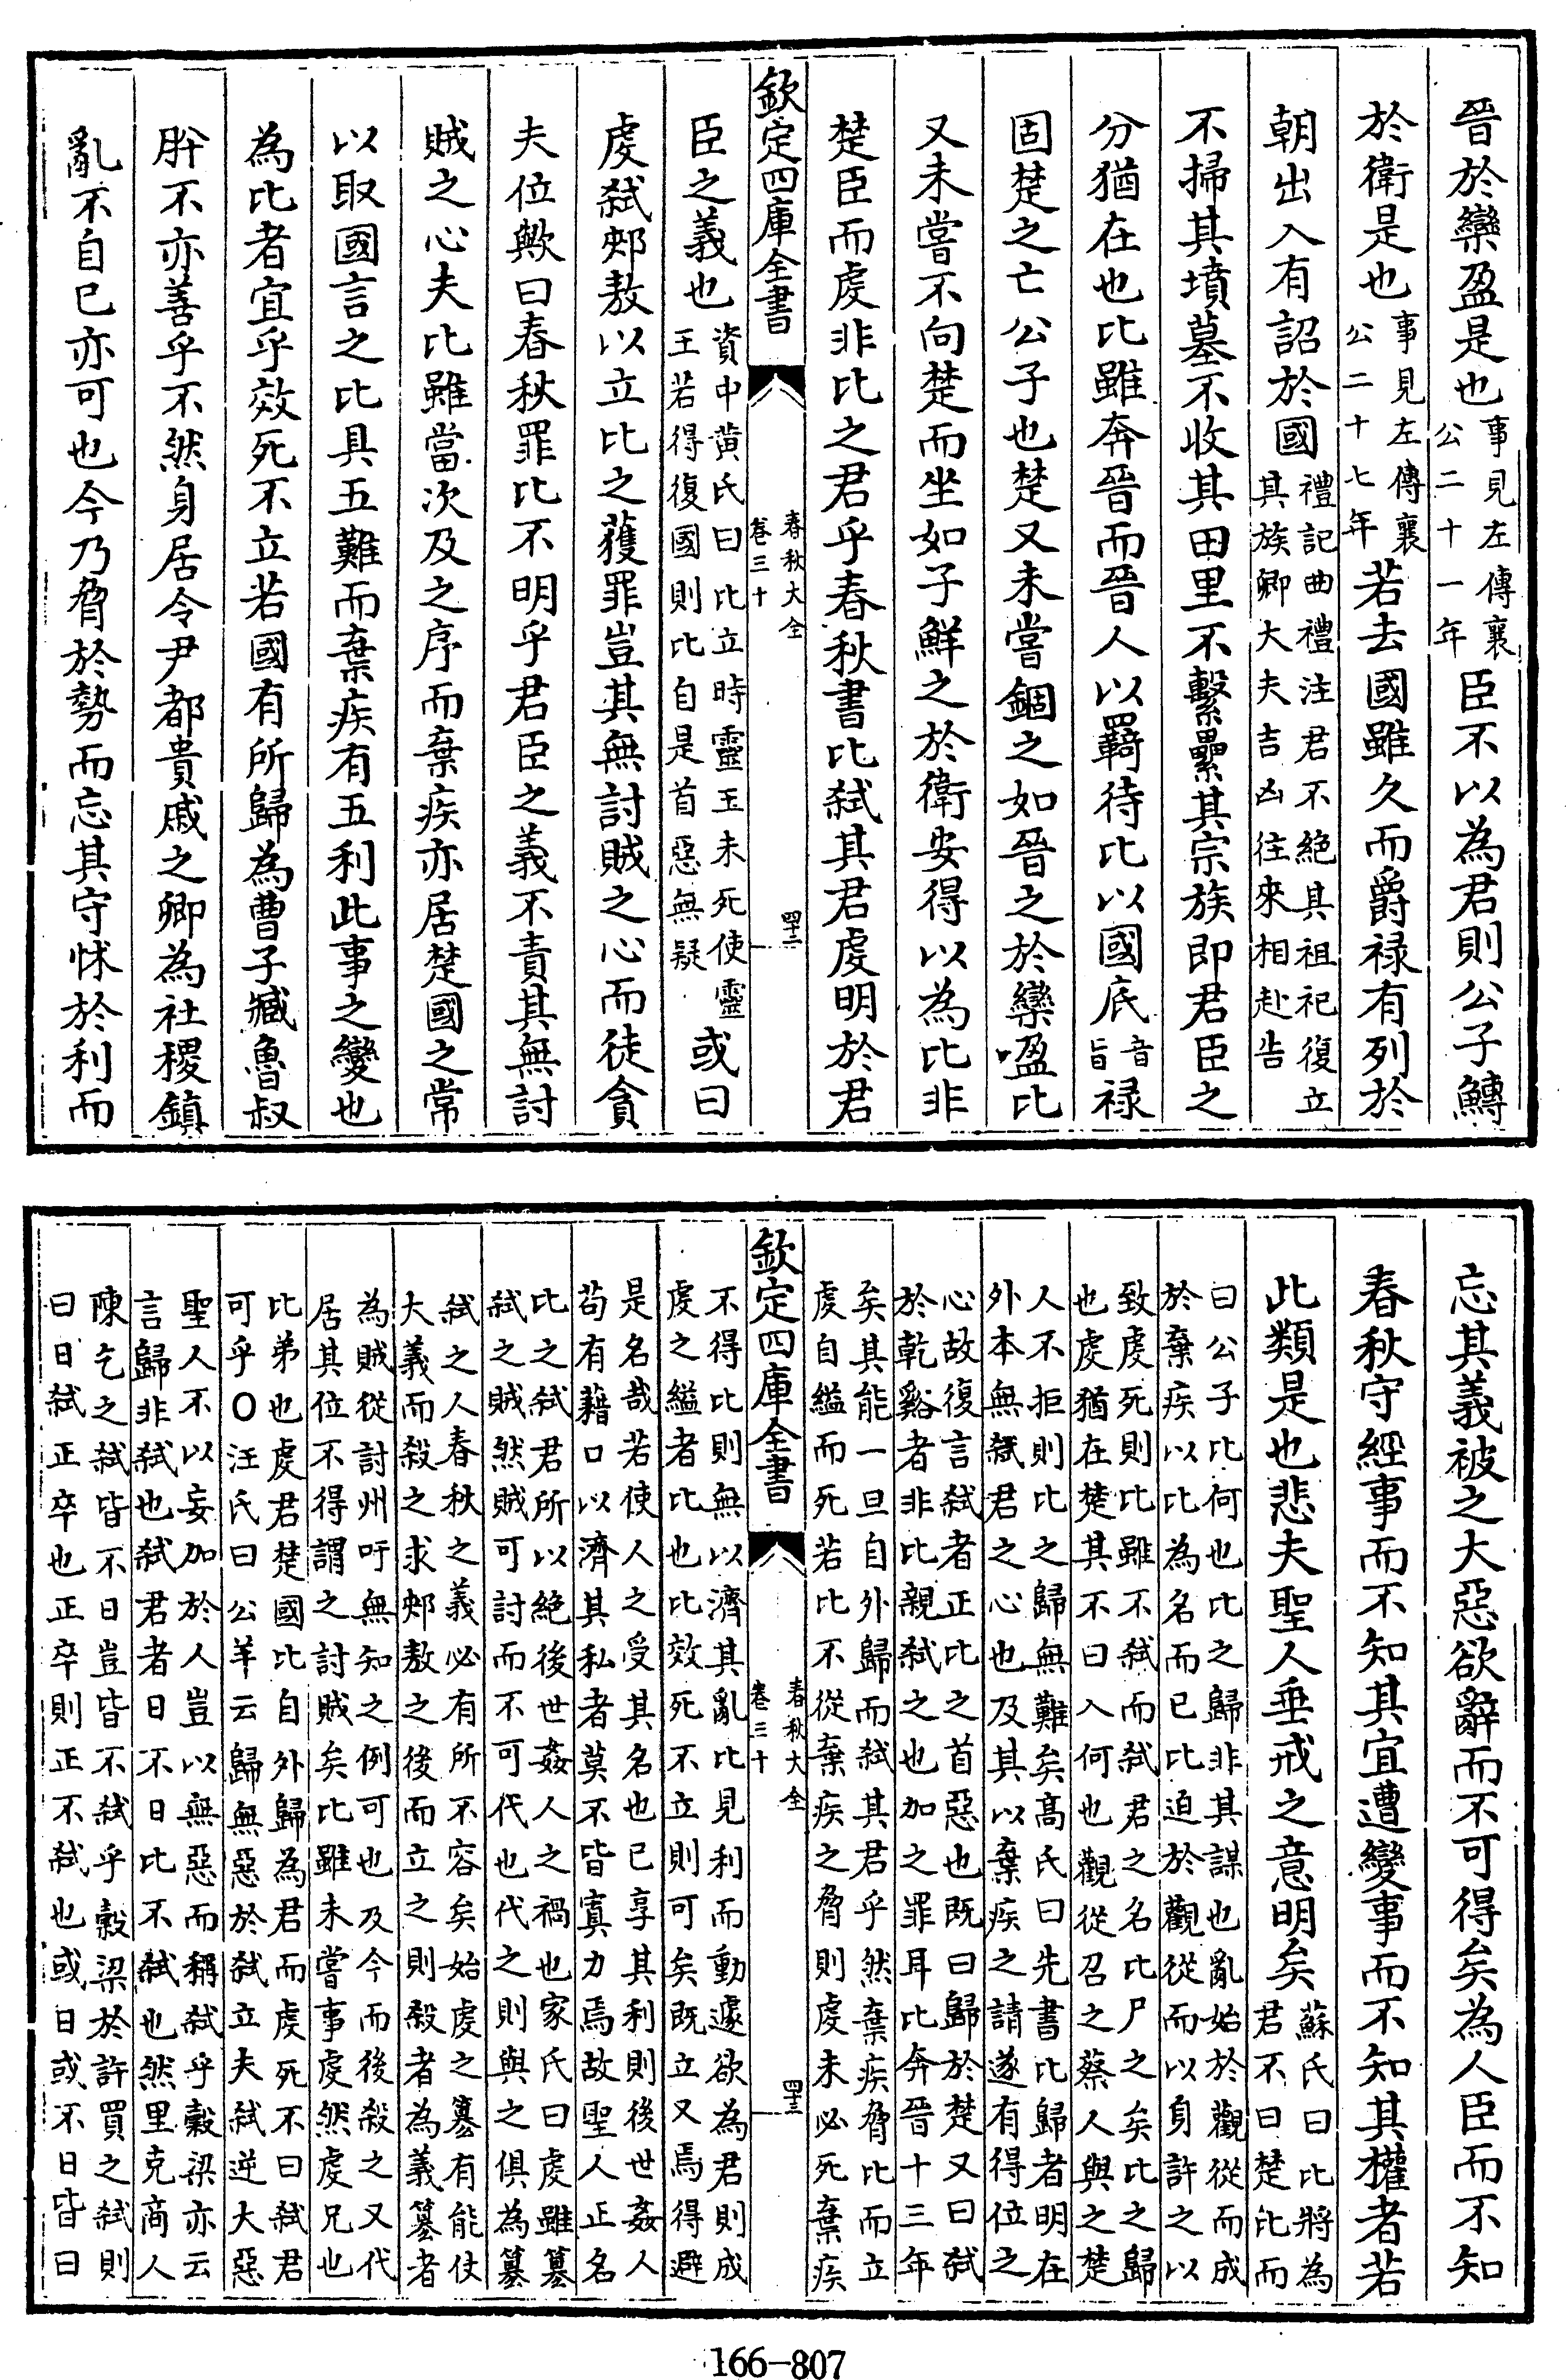 晉於欒盈是也事見左傳襄公二十一年臣不以為君則公子鱄
於衛是也事見左傳襄公二十七年若去國雖久而爵禄有列於
朝出入有詔於國禮記曲禮注君不絶其祖祀復立其族卿大夫吉凶往來相赴告
不掃其墳墓不收其田里不繫纍其宗族即君臣之
分猶在也比雖奔晉而晉人以羇待比以國底音旨禄
固楚之亡公子也楚又未嘗錮之如晉之於欒盈比
又未嘗不向楚而坐如子鮮之於衛安得以為比非
楚臣而虔非比之君乎春秋書比弑其君虔明於君
欽定四庫全書
春秋大全
卷三十
四十二
臣之義也資中黄氏曰比立時靈王未死使靈王若得復國則比自是首惡無疑或曰
虔弑郟敖以立比之獲罪豈其無討賊之心而徒貪
夫位歟曰春秋罪比不明乎君臣之義不責其無討
賊之心夫比雖當次及之序而棄疾亦居楚國之常
以取國言之比具五難而棄疾有五利此事之變也
為比者宜乎效死不立若國有所歸為曹子臧魯叔
肸不亦善乎不然身居令尹都貴戚之卿為社稷鎮
亂不自已亦可也今乃脅於勢而忘其守怵於利而
忘其義被之大惡欲辭而不可得矣為人臣而不知
春秋守經事而不知其宜遭變事而不知其權者若
此類是也悲夫聖人垂戒之意明矣蘇氏曰比將為君不曰楚比而
曰公子比何也比之歸非其謀也亂始於觀從而成
於棄疾以比為名而已比迫於觀從而以身許之以
致虔死則比雖不弑而弑君之名比尸之矣比之歸
也虔猶在楚其不曰入何也觀從召之蔡人與之楚
人不拒則比之歸無難矣高氏曰先書比歸者明在
外本無弑君之心也及其以棄疾之請遂有得位之
心故復言弑者正比之首惡也既曰歸於楚又曰弑
於乾谿者非比親弑之也加之罪耳比奔晉十三年
矣其能一旦自外歸而弑其君乎然棄疾脅比而立
虔自縊而死若比不從棄疾之脅則虔未必死棄疾
欽定四庫全書
春秋大全
卷三十
四十三
不得比則無以濟其亂比見利而動遽欲為君則成
虔之縊者比也比效死不立則可矣既立又焉得避
是名哉若使人之受其名也已享其利則後世姦人
苟有藉口以濟其私者莫不皆寘力焉故聖人正名
比之弑君所以絶後世姦人之禍也家氏曰虔雖篡
弑之賊然賊可討而不可代也代之則與之俱為篡
弑之人春秋之義必有所不容矣始虔之篡有能仗
大義而殺之求郟敖之後而立之則殺者為義篡者
為賊從討州吁無知之例可也及今而後殺之又代
居其位不得謂之討賊矣比雖未嘗事虔然虔兄也
比弟也虔君楚國比自外歸為君而虔死不曰弑君
可乎○汪氏曰公羊云歸無惡於弑立夫弑逆大惡
聖人不以妄加於人豈以無惡而稱弑乎穀梁亦云
言歸非弑也弑君者日不日比不弑也然里克商人
陳乞之弑皆不日豈皆不弑乎穀梁於許買之弑則
曰日弑正卒也正卒則正不弑也或日或不日皆曰
166-807